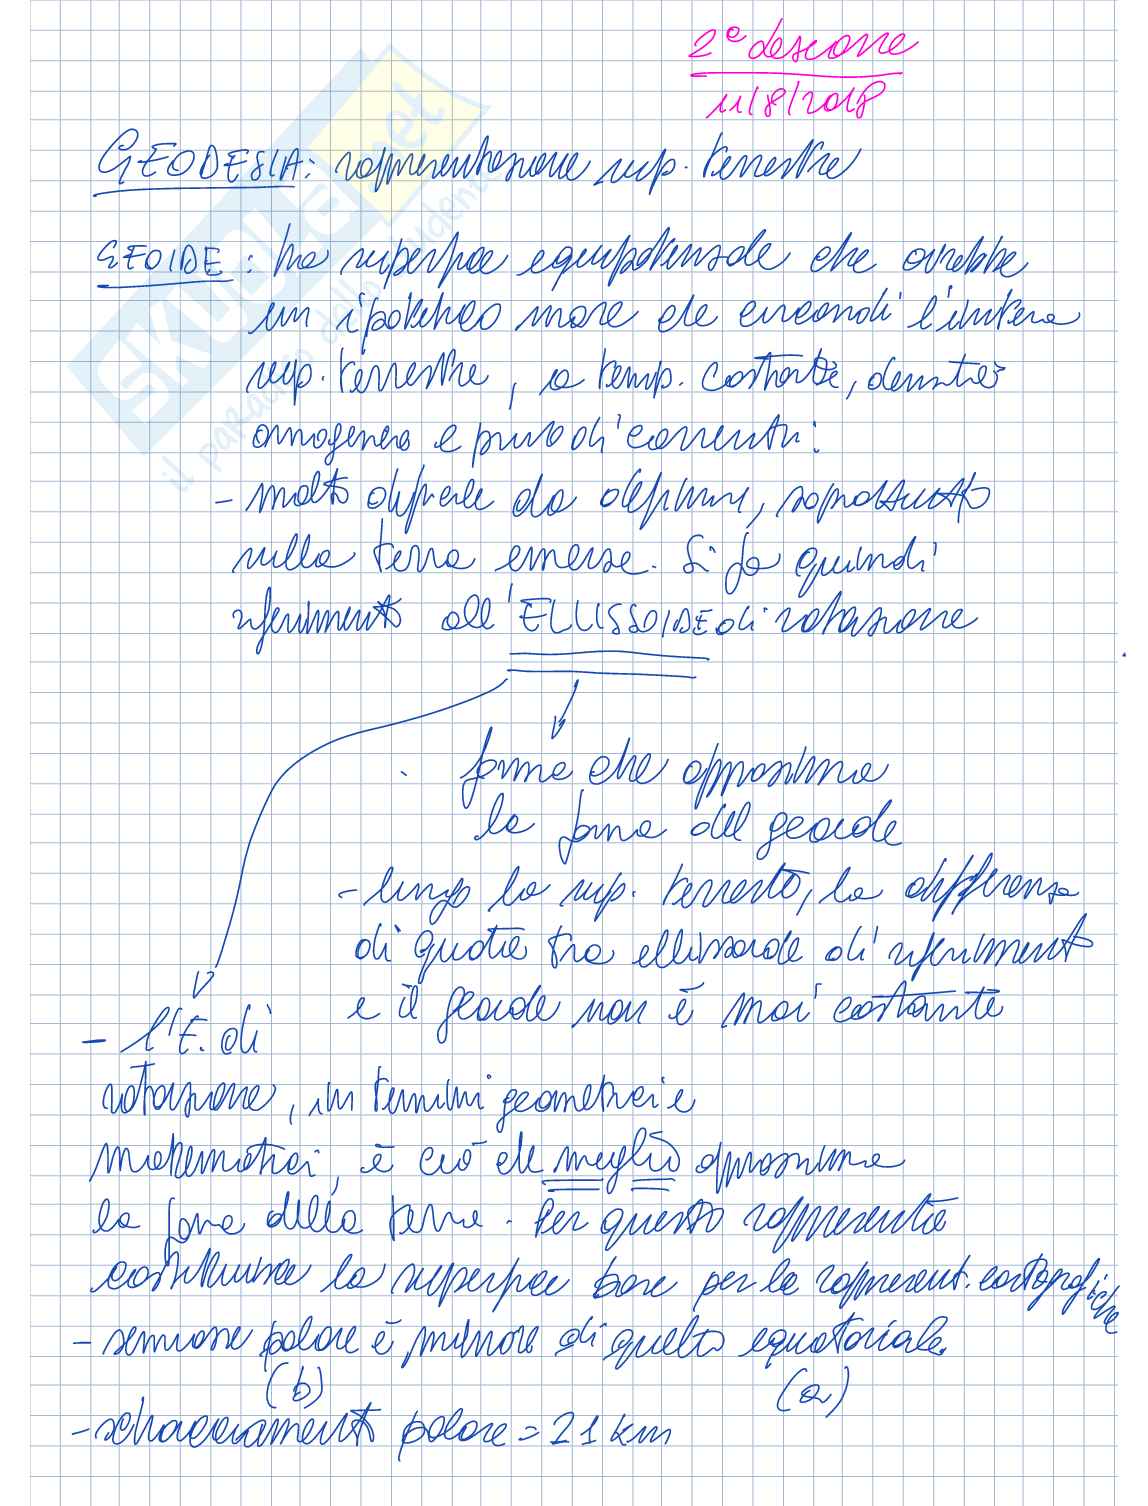 2ª lezione
11/8/2018
GEODESIA: rappresentazione sup. terrestre
GEOIDE: ha superficie equipotenziale che avrebbe
un ipotetico mare che circondi l'intera
sup. terrestre, a temp. costante, densità
omogenea e privo di correnti:
- molto difficile da definire, soprattutto
sulla terra emersa. Si fa quindi
riferimento all'ELLISSOIDE di rotazione
forma che approssima
la forma del geoide
- lungo la sup. terrestre, la differenza
di quota tra ellissoide di riferimento
e il geoide non è mai costante
- l'E. di
rotazione, in termini geometrici e
matematici, è ciò che meglio approssima
la forma della terra. Per questo rappresenta
costituisce la superficie base per le rappresent. cartografiche
- semiasse polare è minore di quello equatoriale.
(b) (a)
- schiacciamento polare = 21 km
SKUOLA.net
il paradiso dello studente